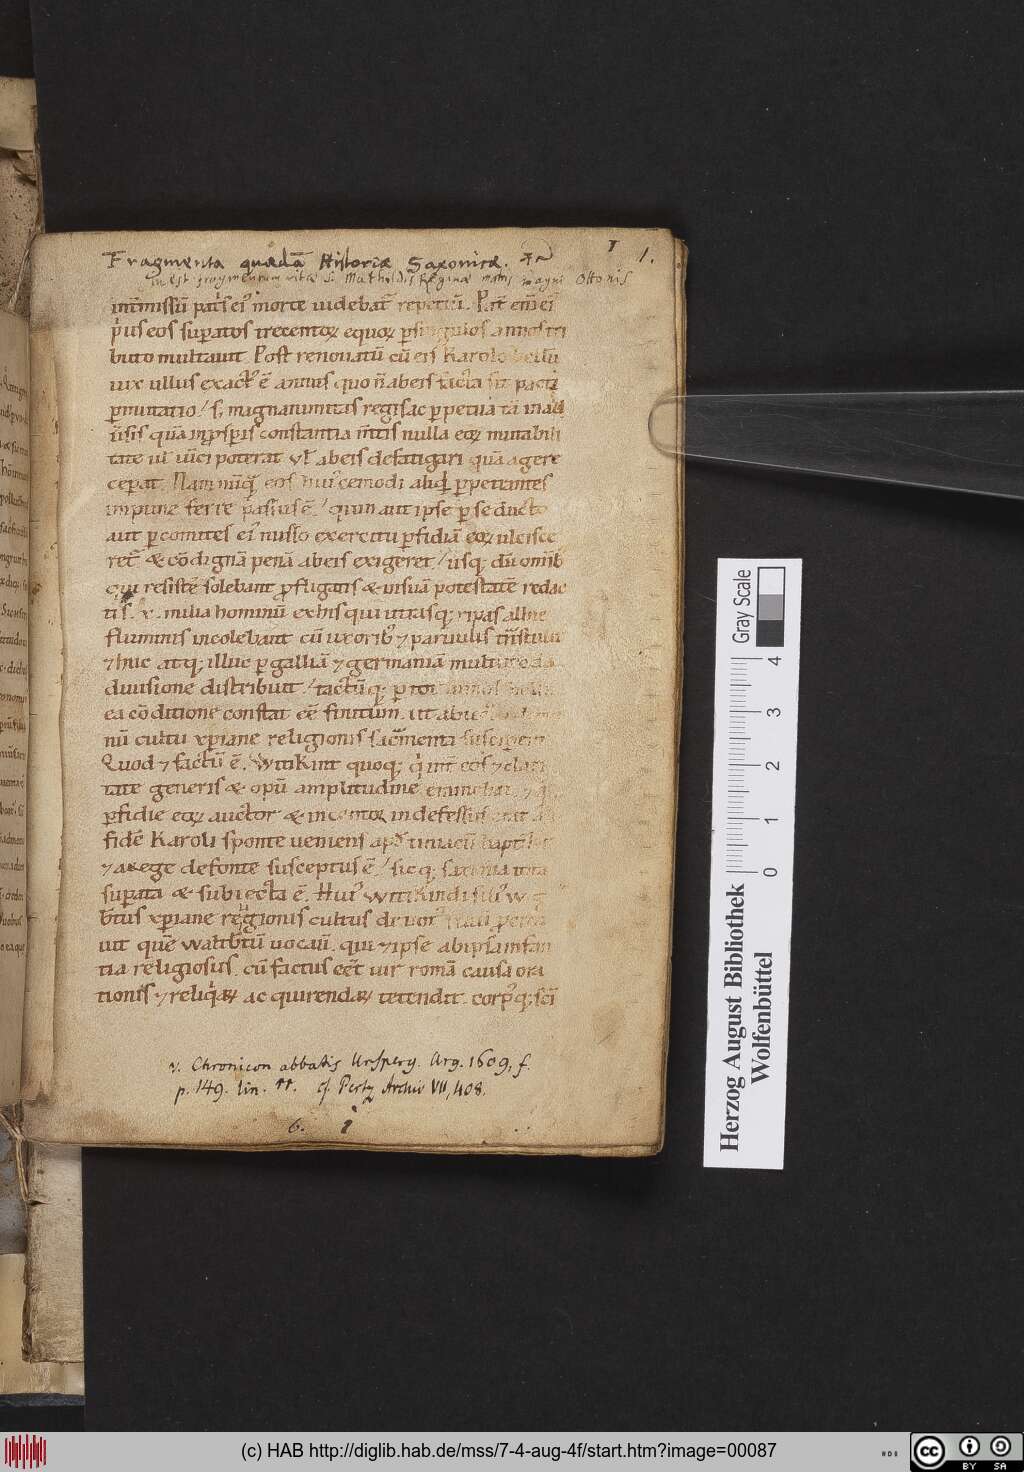 Fragmenta quædā Historiæ Saxonicæ.
1.
Inest fragmentum vitæ S. Mathildis Reginæ matris magni Ottonis
int̄missū pat's ei' morte uidebat̄ repetiu͛. Pat̄ eni͛ ei'
p'us eos suꝑatos trecentoꝝ equoꝝ ꝑ singulos annos tri
buto multauit. Post renouatū cū eis Karolo bellū
uix ullus exact' ē annus quo n̄ ab eis facta sit pacti
ꝑmutatio / S; magnanimitas regis ac ꝑpetua tā in ad
u͛sis quā in ꝓsꝑis constantia m̄tis nulla eoꝝ mutabili
tate ul' uinci poterat ul' ab eis defatigari quā agere
ceperat. Nam nūq͛ eos hui'cemodi aliq͛ ꝑpetrantes
impune ferre passus ē / quin aut ipse ꝑ se ducto
aut ꝑ comites ei' misso exercitu ꝑfidiā eoꝝ ulcisce
ret͛ & cōdignā penā ab eis exigeret / usq; dū omnib
qui resistē solebant ꝓfligatis & in suā potestatē redac
tis .x. milia hominū ex his qui utrasq; ripas albie
fluminis incolebant cū uxorib' ⁊ paruulis
⁊ huc atq; illuc ꝑ galliā ⁊ germaniā multimoda
diuisione distribuit /
ea cōditione constat eē finitum. ut abiecto
nū cultu xp̄iane religionis sac͛menta susciperent
Quod ⁊ factū ē. Witikint quoq; q' int̄ eos ⁊ clari
tate generis & opū amplitudine eminebat, ⁊ q'
ꝑfidie eoꝝ auctor & incentor indefessus erat ad
fidē Karoli sponte ueniens
⁊ a rege de fonte susceptus ē / sicq; saxonia tota
suꝑata & subiecta ē. Hui' Witikindi fili'
b̄tus xp̄iane religionis cultus
uit quē waltb̄tū uocauit. qui ⁊ ipse ab ipsa infan
tia religiosus. cū factus eēt uir romā causa ora
tionis ⁊ reliq'aꝝ acquirendaꝝ tetendit. corp'q; sc̄i
v. Chronicon abbatis Ursperg. Arg. 1609, f.
p. 149. lin. 11. cf. Pertz Archiv VII, 408.
6. 1
Gray Scale
0 1 2 3 4
Herzog August Bibliothek
Wolfenbüttel
(c) HAB http://diglib.hab.de/mss/7-4-aug-4f/start.htm?image=00087
cc BY SA